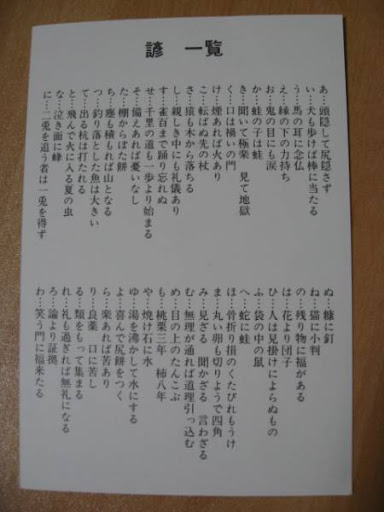 諺 一覧
あ…頭隠して尻隠さず
い…犬も歩けば棒に当たる
う…馬の耳に念仏
え…縁の下の力持ち
お…鬼の目にも涙
か…蛙の子は蛙
き…聞いて極楽 見て地獄
く…口は禍いの門
け…煙あれば火あり
こ…転ばぬ先の杖
さ…猿も木から落ちる
し…親しき中にも礼儀あり
す…雀百まで踊り忘れぬ
せ…千里の道も一歩より始まる
そ…備えあれば憂いなし
た…棚からぼた餅
ち…塵も積もれば山となる
つ…釣り落とした魚は大きい
て…出る杭は打たれる
と…飛んで火に入る夏の虫
な…泣き面に蜂
に…二兎を追う者は一兎を得ず
ぬ…糠に釘
ね…猫に小判
の…残り物に福がある
は…花より団子
ひ…人は見掛けによらぬもの
ふ…袋の中の鼠
へ…蛇に蛙
ほ…骨折り損のくたびれもうけ
ま…丸い卵も切りようで四角
み…見ざる 聞かざる 言わざる
む…無理が通れば道理引っ込む
め…目の上のたんこぶ
も…桃栗三年 柿八年
や…焼け石に水
ゆ…湯を沸かして水にする
よ…喜んで尻餅をつく
ら…楽あれば苦あり
り…良薬 口に苦し
る…類をもって集まる
れ…礼も過ぎれば無礼になる
ろ…論より証拠
わ…笑う門に福来たる